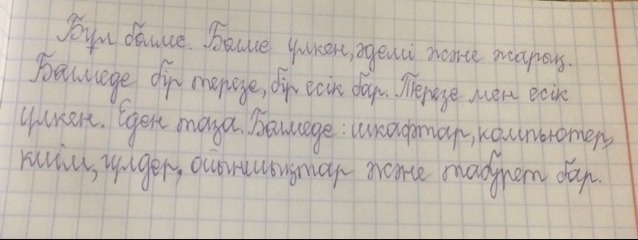 Бұл бөлме. Бөлме үлкен, әдемі және жарық.
Бөлмеде бір терезе, бір есік бар. Терезе мен есік
үлкен. Еден таза. Бөлмеде: шкафтар, компьютер,
киім, гүлдер, ойыншықтар және табурет бар.